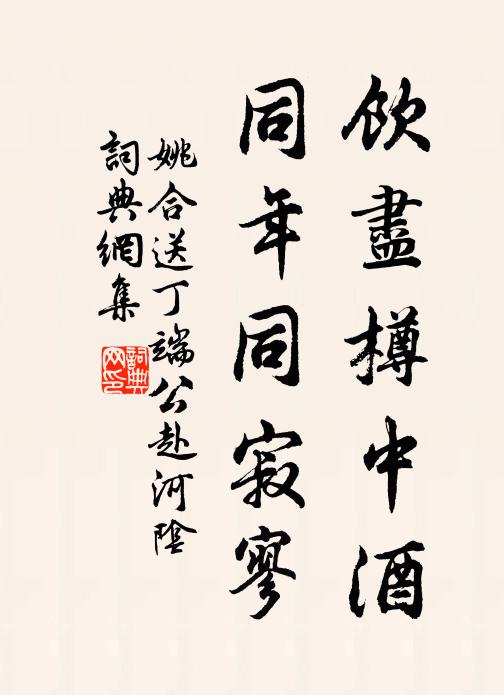 飲盡樽中酒
同年同寂寥
姚合送丁端公赴河陰
詞典網集
詞典網印